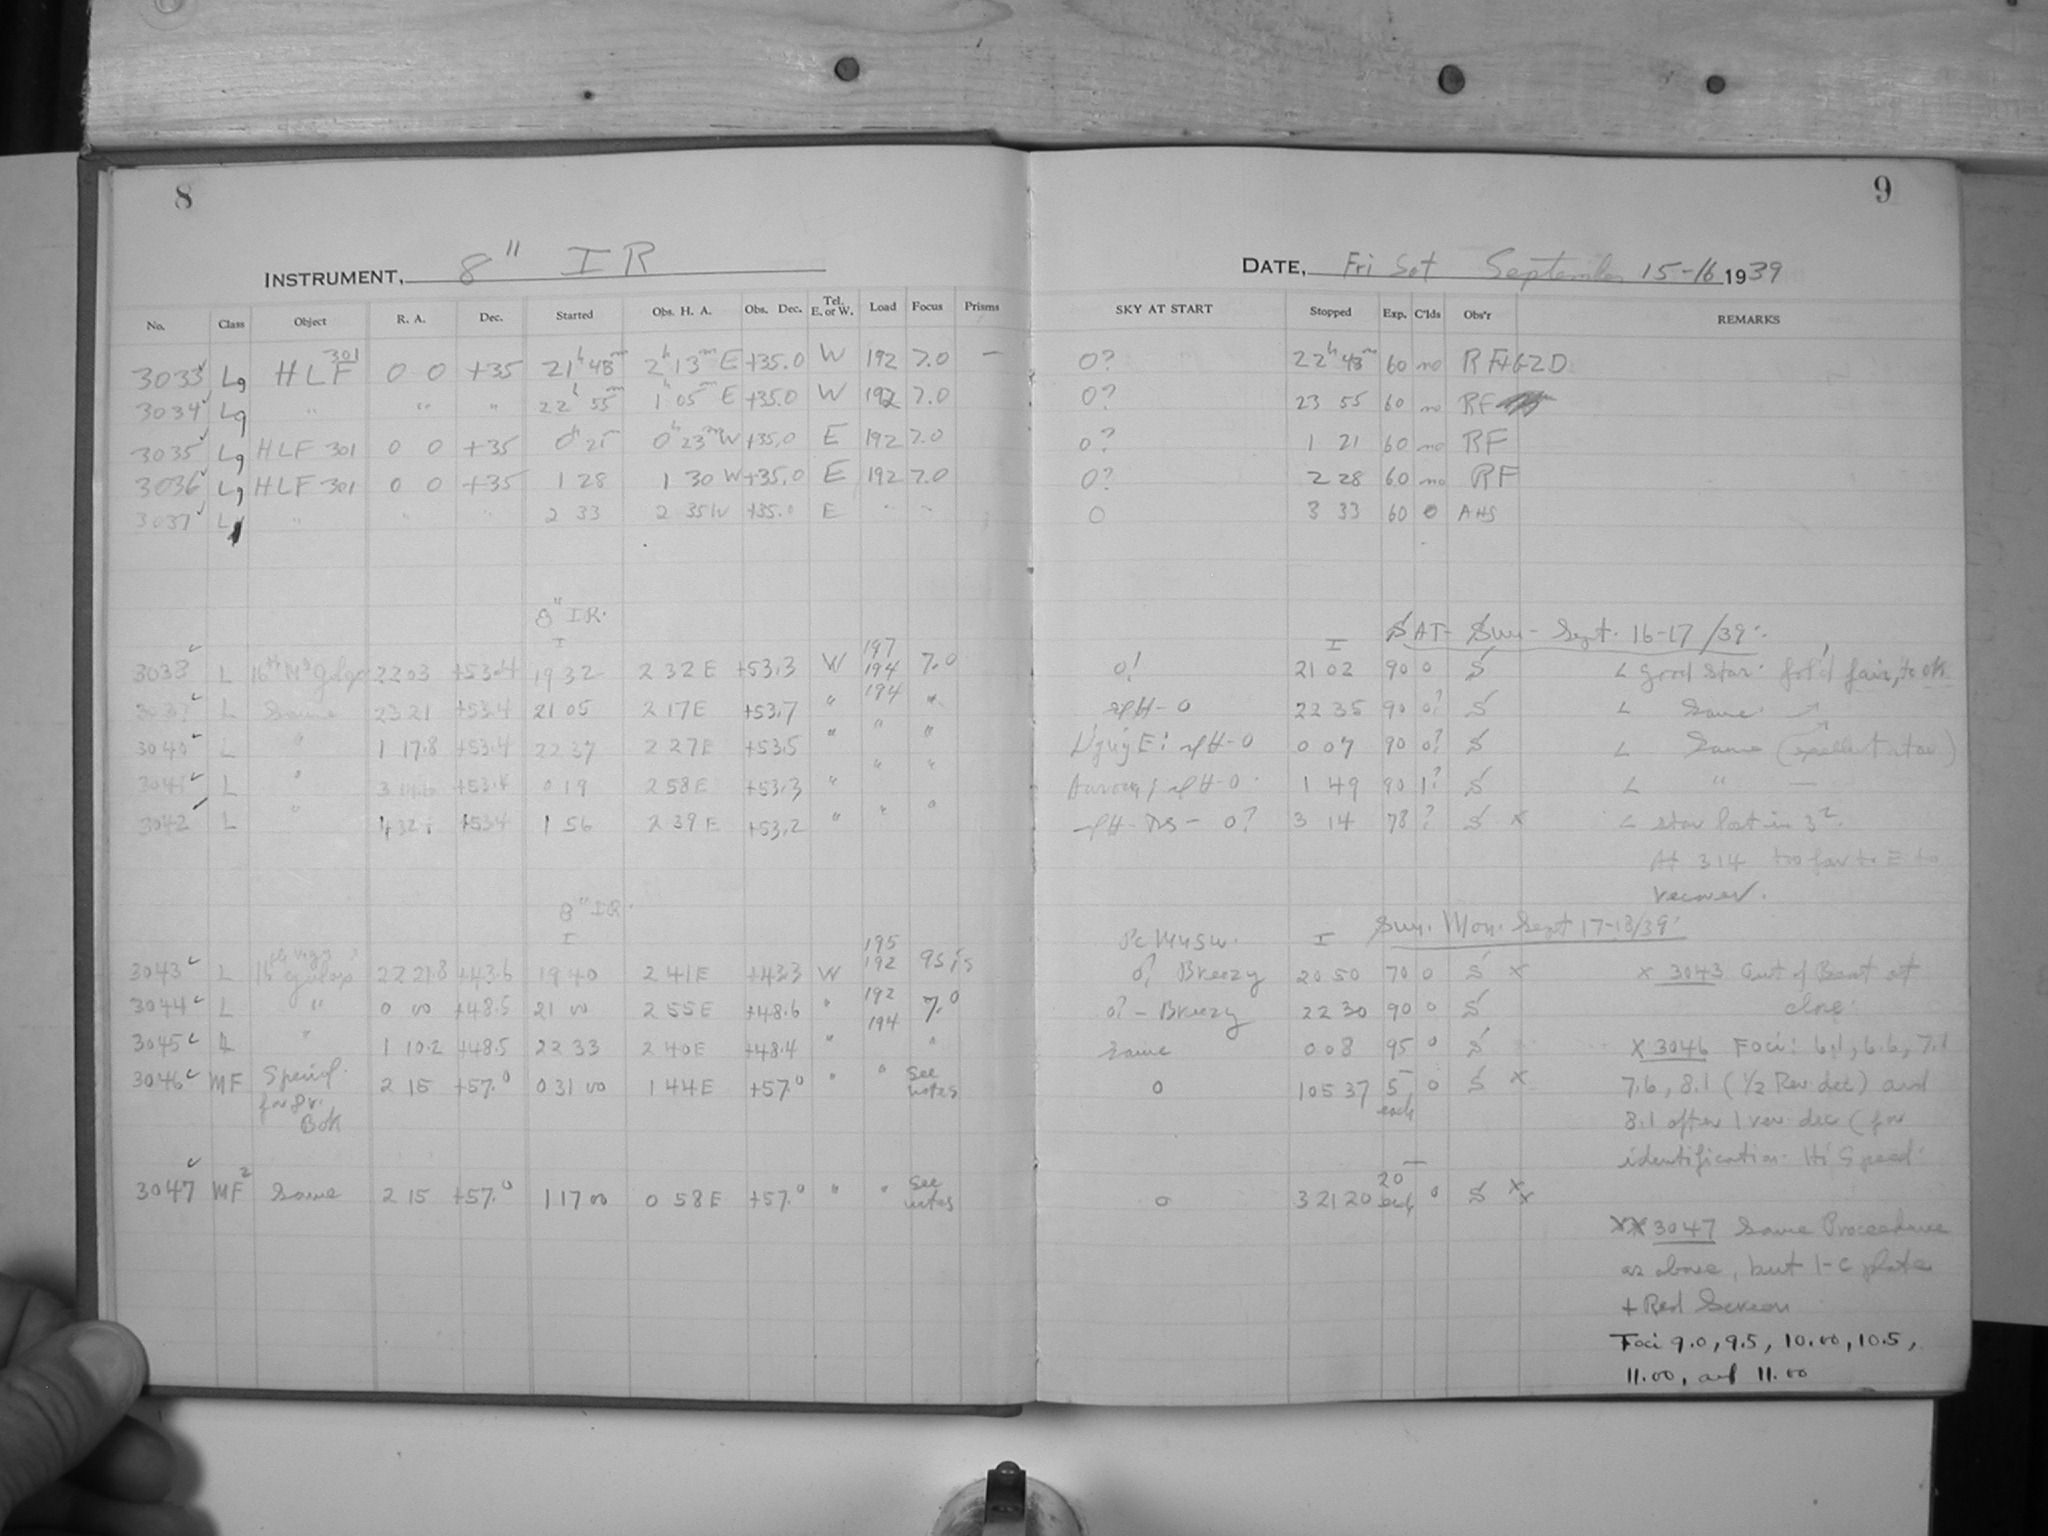 8
INSTRUMENT, 8" IR
No. Class Object R. A. Dec. Started Obs. H. A. Obs. Dec. Tel. E. or W. Load Focus Prisms
3033 Lg HLF 301 0 0 +35 21h 48m 2h 13m E +35.0 W 192 7.0 —
3034 Lg " " " 22h 55m 1h 05m E +35.0 W 192 7.0
3035 Lg HLF 301 0 0 +35 0h 21m 0h 23m W +35.0 E 192 7.0
3036 Lg HLF 301 0 0 +35 1 28 1 30 W +35.0 E 192 7.0
3037 L " " " 2 33 2 35 W +35.0 E " "
8" IR.
I
3038 L 16th 22 03 +53.4 19 32 2 32 E +53.3 W 197 194 7.0
3039 L Same 23 21 +53.4 21 05 2 17 E +53.7 " 194 "
3040 L " 1 17.8 +53.4 22 37 2 27 E +53.5 " " "
3041 L " 3 +53.4 0 19 2 58 E +53.3 " " "
3042 L " 4 32 +53.4 1 56 2 39 E +53.2 " " "
8" IR.
I
3043 L 16 22 21.8 +43.6 19 40 2 41 E +43.3 W 195 192
3044 L " 0 00 +48.5 21 00 2 55 E +48.6 " 192 7.0
3045 L " 1 10.2 +48.5 22 33 2 40 E +48.4 " 194 "
3046 MF Special for Dr. Bok 2 15 +57.0 0 31 00 1 44 E +57.0 " " See notes
3047 MF2 Same 2 15 +57.0 1 17 00 0 58 E +57.0 " " See notes
9
DATE, Fri Sat September 15-16 1939
SKY AT START Stopped Exp. C'lds Obs'r REMARKS
0? 22h 48m 60 no RF+GZD
0? 23 55 60 no RF
0? 1 21 60 no RF
0? 2 28 60 no RF
0 3 33 60 0 AHS
I SAT- Sun- Sept. 16-17/39.
0! 21 02 90 0 S L Good Star. fol'd fair, to ok
22 35 90 0? S L Same.
0 07 90 0? S L Same (excellent star)
Aurora; 1 49 90 1? S L " —
0? 3 14 78 ? S x L Star lost in
At 3 14 too far to E to
recover.
I Sun. Mon. Sept 17-18/39.
0? Breezy 20 50 70 0 S x x 3043 Out of Beat at
close.
0? - Breezy 22 30 90 0 S
Same 0 08 95 0 S
0 1 05 37 5 each 0 S x X 3046 Foci: 6.1, 6.6, 7.1
7.6, 8.1 (1/2 Rev. dec) and
8.1 after 1 rev. dec (for
identification. Hi Speed.
0 3 21 20 20 each 0 S xx
XX 3047 Same Proceedure
as above, but 1-C plate
+ Red Screen
Foci 9.0, 9.5, 10.00, 10.5,
11.00, and 11.00